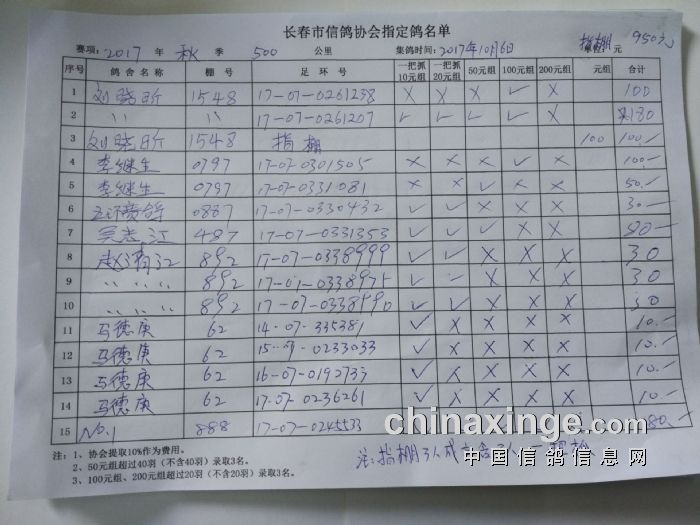 长春市信鸽协会指定鸽名单
赛项：2017 年 秋 季 500 公里 集鸽时间：2017年10月6日 指棚 单位：元 950元
序号 鸽舍名称 棚号 足环号 一把抓10元组 一把抓20元组 50元组 100元组 200元组 元组 合计
1 刘晓昕 1548 17-07-0261238 X X X ✓ X 100
2 〃 〃 17-07-0261207 ✓ ✓ ✓ ✓ X 180
3 刘晓昕 1548 指棚 100 100/-
4 李继生 0797 17-07-0301505 X X X ✓ X 100-
5 李继生 0797 17-07-0331081 X X ✓ X X 50.-
6 0887 17-07-0330432 ✓ ✓ X X X 30-
7 吴志江 487 17-07-0331353 ✓ ✓ ✓ X X
8 892 17-07-0338999 ✓ ✓ X X X 30
9 〃 〃 〃 892 17-07-0338975 ✓ ✓ X X X 30
10 〃 〃 〃 892 17-07-0338590 ✓ ✓ X X X 30
11 马德庚 62 14-07-335381 ✓ X X X X 10.-
12 马德庚 62 15-07-0233033 ✓ X X X X 10.-
13 马德庚 62 16-07-0192733 ✓ X X X X 10.-
14 马德庚 62 17-07-0236261 ✓ X X X X 10.-
15 No.1 888 17-07-0245533 80.-
注：1、协会提取10%作为费用。
2、50元组超过40羽（不含40羽）录取3名。
3、100元组、200元组超过20羽（不含20羽）录取3名。
注：指棚3人成立
chinaxinge.com
中国信鸽信息网